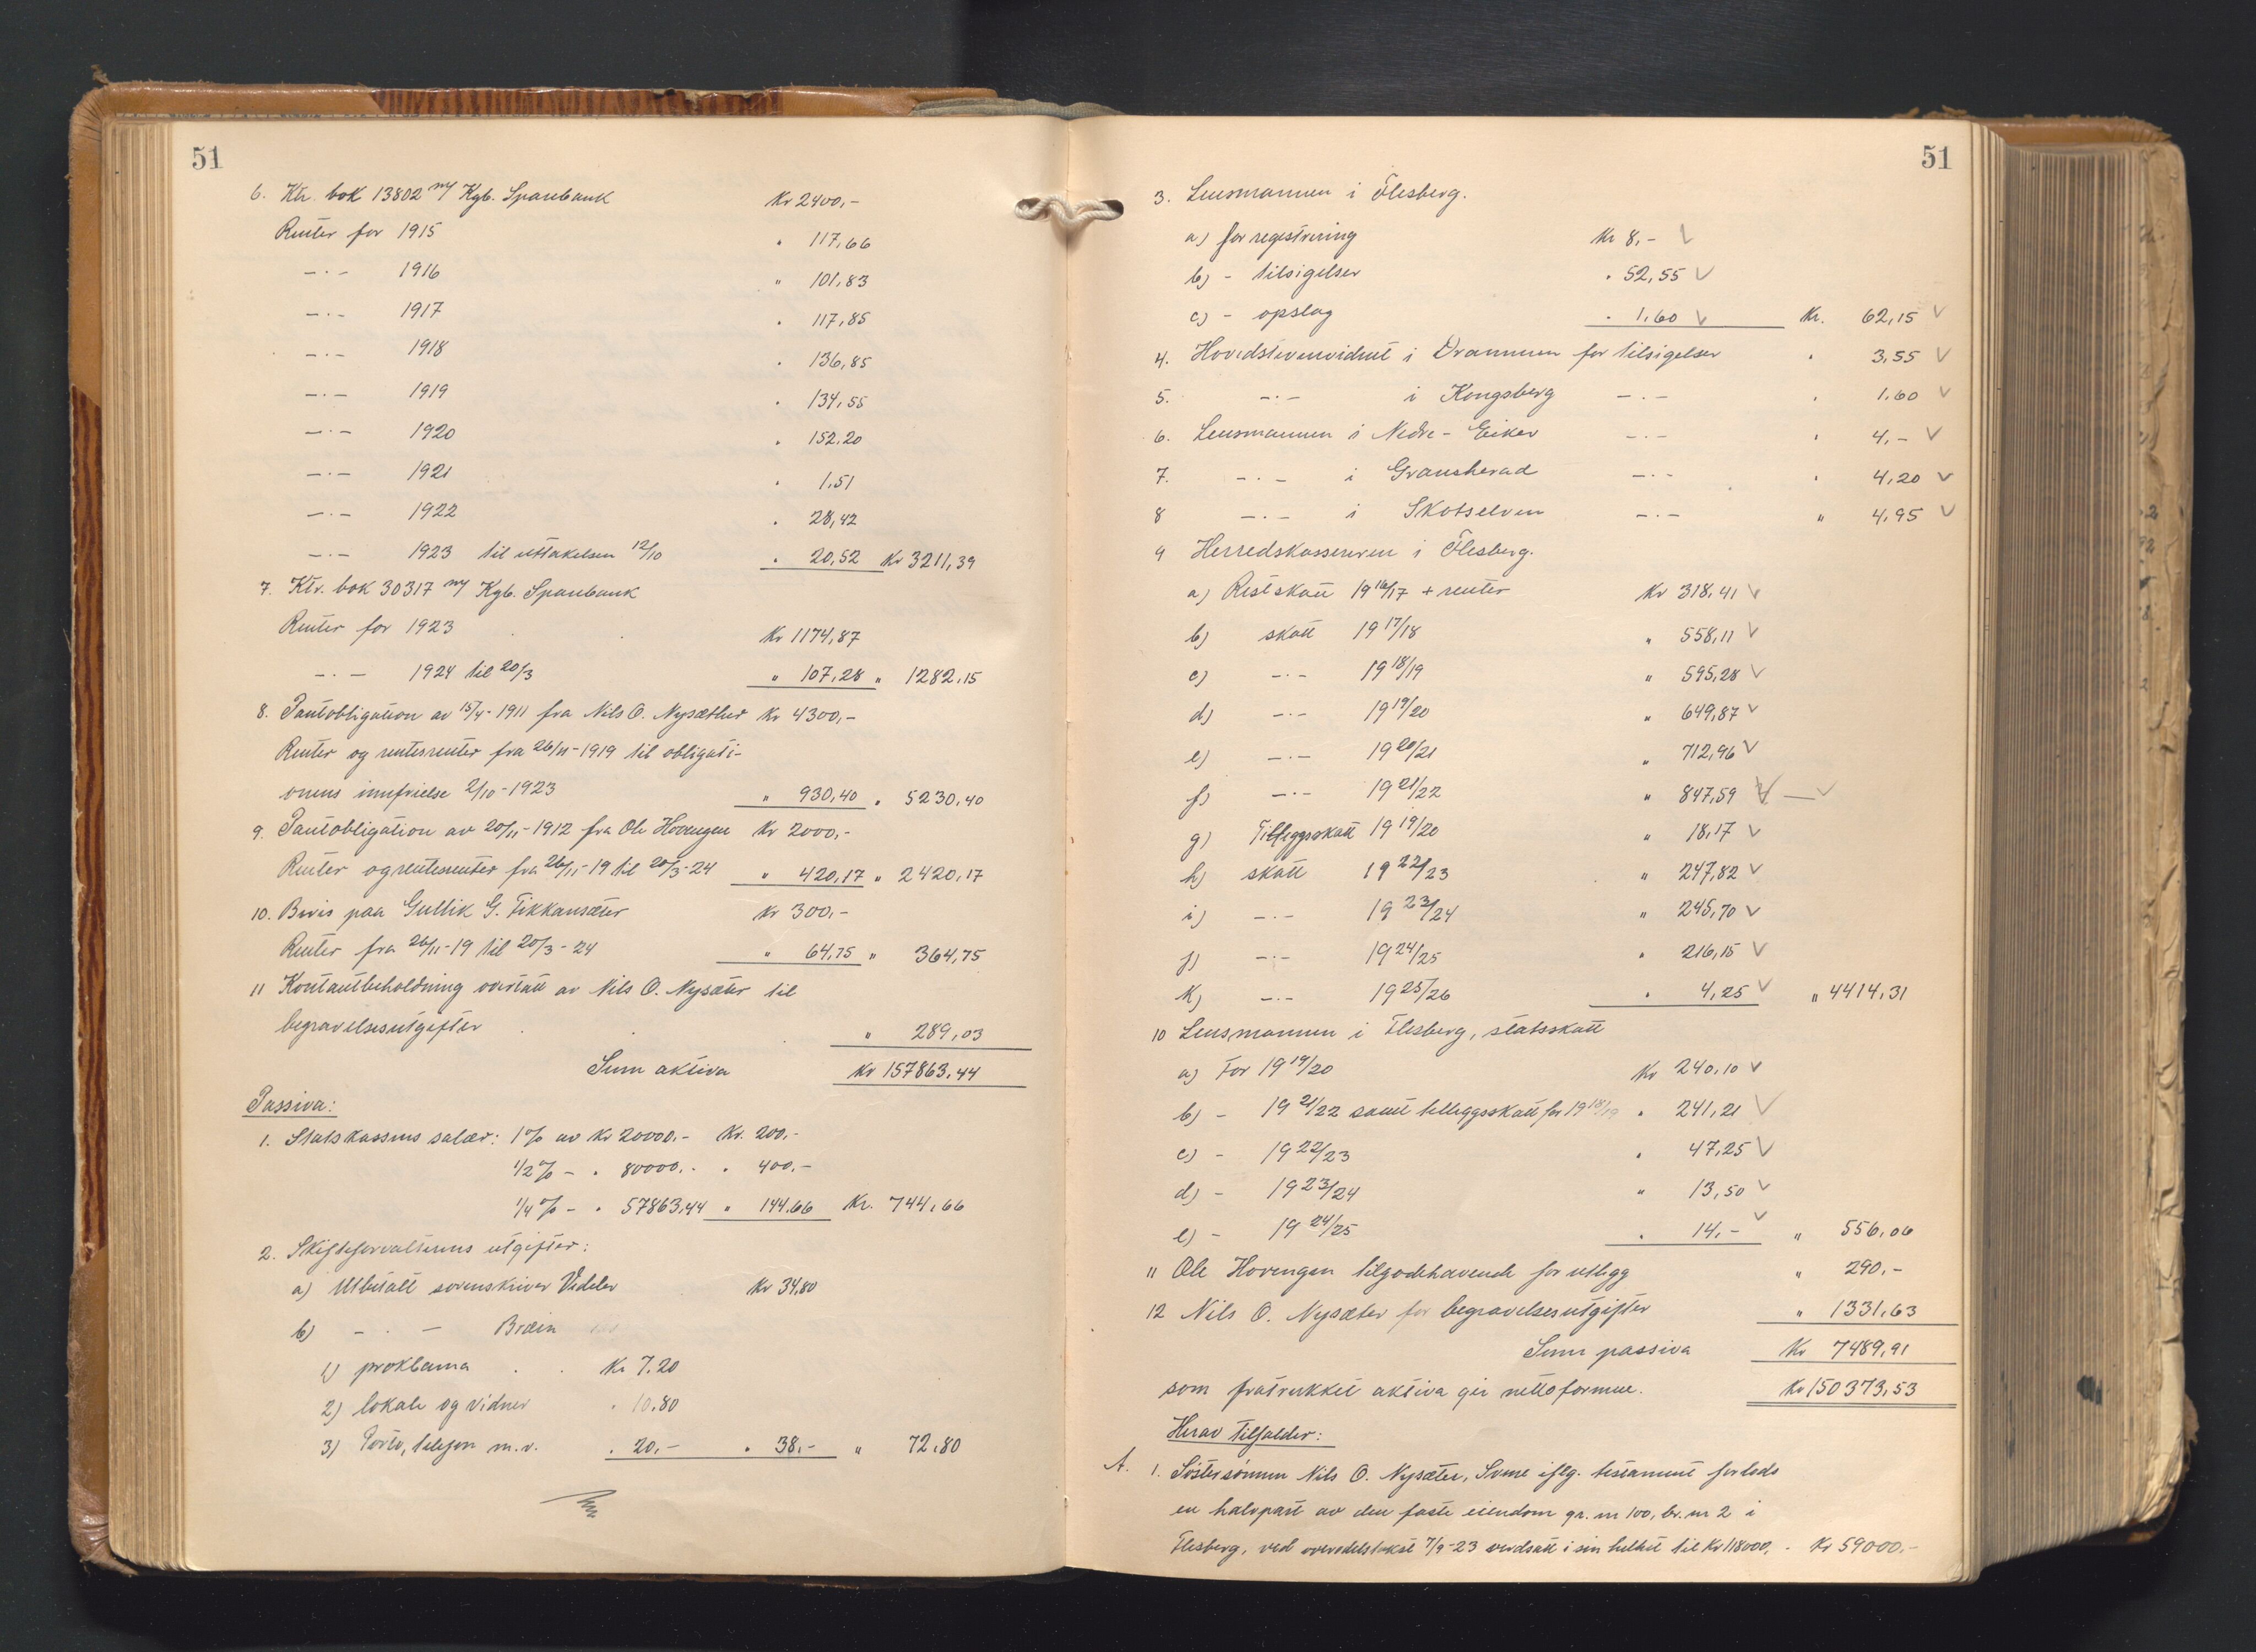 51
6. Ktr. bok 13802 m/ Kgb. Sparebank Kr 2400,-
Renter for 1915 " 117,66
-·- 1916 " 101,83
-·- 1917 " 117,85
-·- 1918 " 136,85
-·- 1919 " 134,55
-·- 1920 " 152.20
-·- 1921 " 1,51
-·- 1922 " 28,42
-·- 1923 til uttakelsen 12/10 " 20,52 Kr 3211,39
7. Ktr. bok 30317 m/ Kgb. Sparebank
Renter for 1923 Kr 1174,87
-·- 1924 til 20/3 " 107,28 " 1282,15
8. Pantobligation av 15/4-1911 fra Nils O. Nysæther Kr 4300,-
Renter og rentesrenter fra 26/11-1919 til obligati-
onens innfrielse 2/10-1923 " 930,40 " 5230,40
9. Pantobligation av 20/11-1912 fra Ole Hovengen Kr 2000,-
Renter og rentesrenter fra 26/11-19 til 20/3-24 " 420,17 " 2420,17
10. Bevis paa Gullik G. Fikkansæter Kr 300,-
Renter fra 26/11-19 til 20/3-24 " 64,75 " 364,75
11 Kontantbeholdning overtatt av Nils O. Nysæter til
begravelsesutgifter " 289,03
Sum aktiva Kr 157863,44
Passiva:
1. Statskassens salær: 1% av Kr 20000,- Kr. 200,-
1/2% - " 80000,- " 400,-
1/4% - " 57863,44 " 144,66 Kr. 744,66
2. Skifteforvalterens utgifter:
a) Utbetalt sorenskriver Videler Kr 34,80
b) -·- Bræin
1) proklama Kr 7,20
2) lokale og vidner " 10,80
3) Porto, telefon m.v. " 20,- " 38,- " 72,80
51
3. Lensmannen i Flesberg.
a) for registrering Kr 8,-
b) - tilsigelser " 52,55
c) - opslag " 1,60 Kr. 62,15
4. Hovedstevnevidnet i Drammen for tilsigelser " 3,55
5. -·- i Kongsberg -·- " 1,60
6. Lensmannen i Nedre-Eiker -·- " 4,-
7. -·- i Gransherad -·- " 4,20
8 -·- i Skotselven -·- " 4,95
9 Herredskassereren i Flesberg.
a) Restskatt 1916/17 + renter Kr 318,41
b) skatt 1917/18 " 558,11
c) -·- 1918/19 " 595,28
d) -·- 1919/20 " 649,87
e) -·- 1920/21 " 712,96
f) -·- 1921/22 " 847,59
g) Tilleggsskatt 1919/20 " 18,17
h) skatt 1922/23 " 247,82
i) -·- 1923/24 " 245,70
j) -·- 1924/25 " 216,15
k) -·- 1925/26 " 4,25 " 4414,31
10 Lensmannen i Flesberg, statsskatt
a) For 1919/20 Kr 240,10
b) - 1921/22 samt tilleggsskatt for 1918/19 " 241,21
c) - 1922/23 " 47,25
d) - 1923/24 " 13,50
e) - 1924/25 " 14,- " 556,06
11 Ole Hovengen tilgodehavende for utlegg " 290,-
12 Nils O. Nysæter for begravelsesutgifter " 1331,63
Sum passiva Kr 7489,91
som fratrukket aktiva gir nettoformue. Kr 150373,53
Herav tilfalder:
A. 1. Søstersønnen Nils O. Nysæter, Svene iflg. testament forlods
en halvpart av den faste eiendom gr. nr 100, br. nr 2 i
Flesberg, ved overodelstakst 7/9-23 verdsatt i sin helhet til Kr 118000,- Kr 59000,-